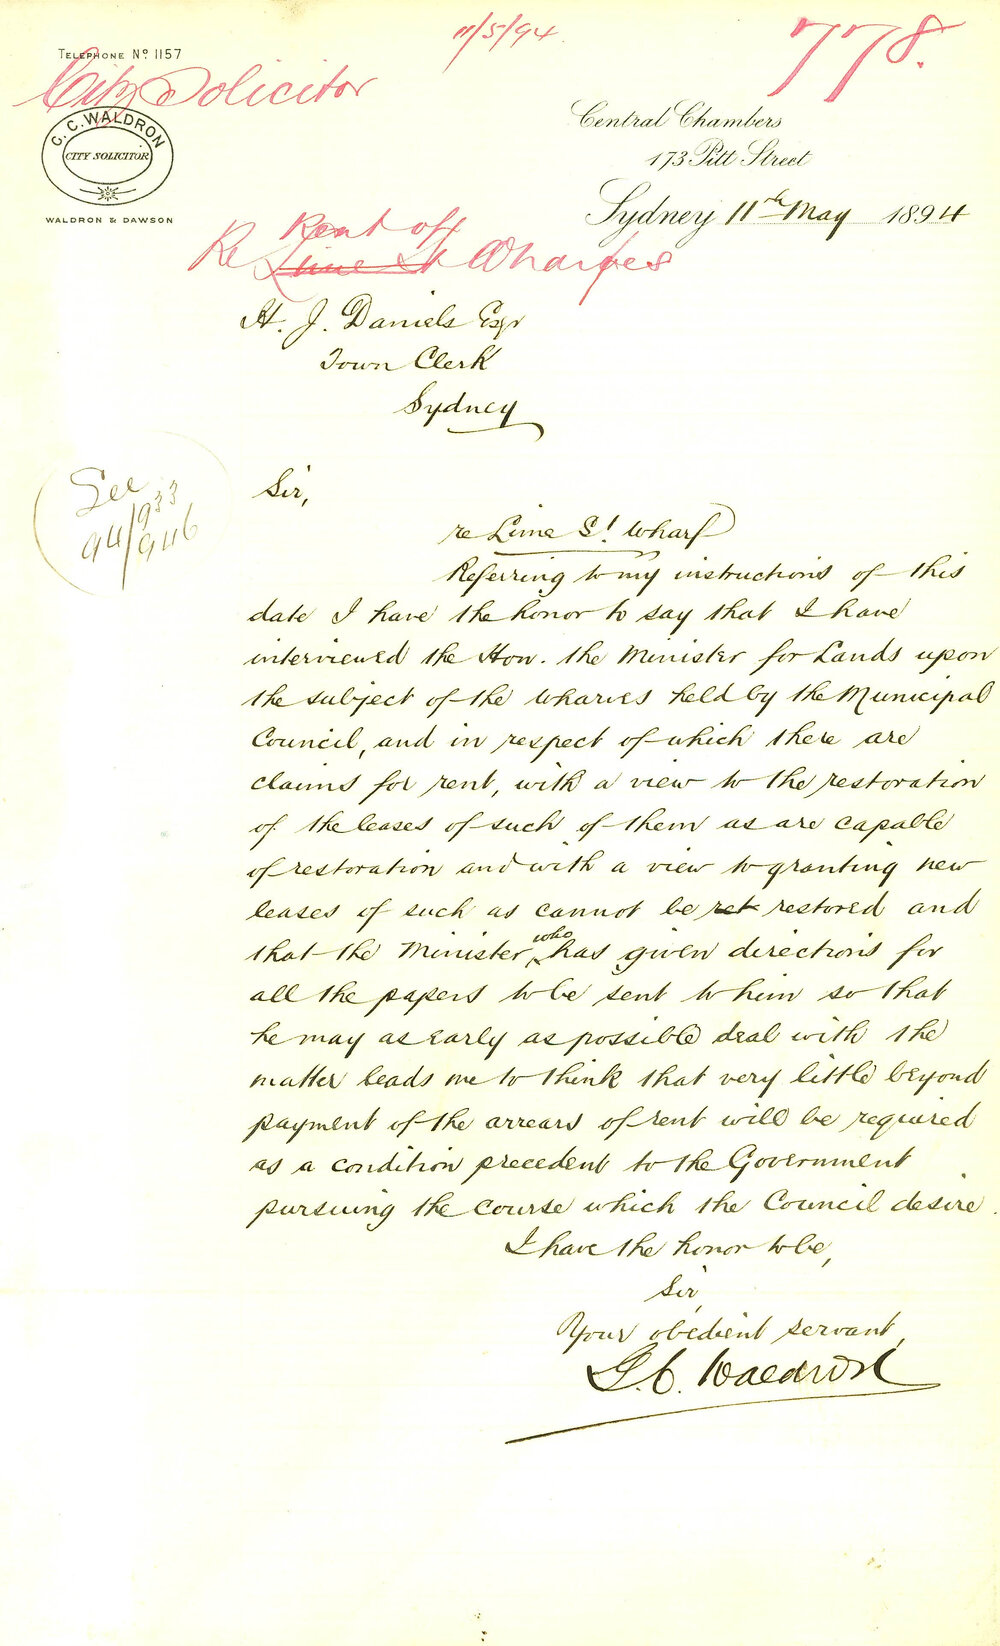 11/5/94.
778.
TELEPHONE No. 1157
City Solicitor
G. C. WALDRON
CITY SOLICITOR
WALDRON & DAWSON
Central Chambers
173 Pitt Street
Sydney 11th May 1894
Rent of
Re Lime St Wharfes
H. J. Daniels Esqr
Town Clerk
Sydney
See
94/933
94/946
Sir,
re Lime St Wharf
Referring to my instructions of this
date I have the honor to say that I have
interviewed the Hon. the Minister for Lands upon
the subject of the Wharves held by the Municipal
Council, and in respect of which there are
claims for rent, with a view to the restoration
of the leases of such of them as are capable
of restoration and with a view to granting new
leases of such as cannot be ret restored and
that the Minister, who has given directions for
all the papers to be sent to him so that
he may as early as possible deal with the
matter leads me to think that very little beyond
payment of the arrears of rent will be required
as a condition precedent to the Government
pursuing the course which the Council desire.
I have the honor to be,
Sir,
Your obedient servant,
G. C. Waldron